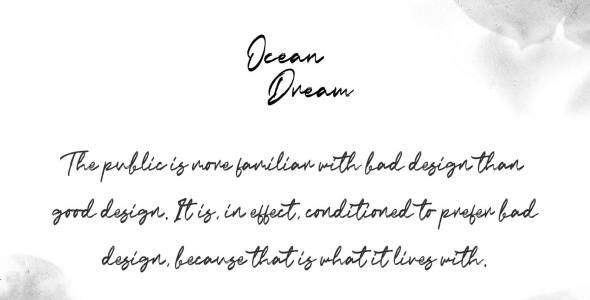 Ocean
Dream
The public is more familiar with bad design than
good design. It is, in effect, conditioned to prefer bad
design, because that is what it lives with.